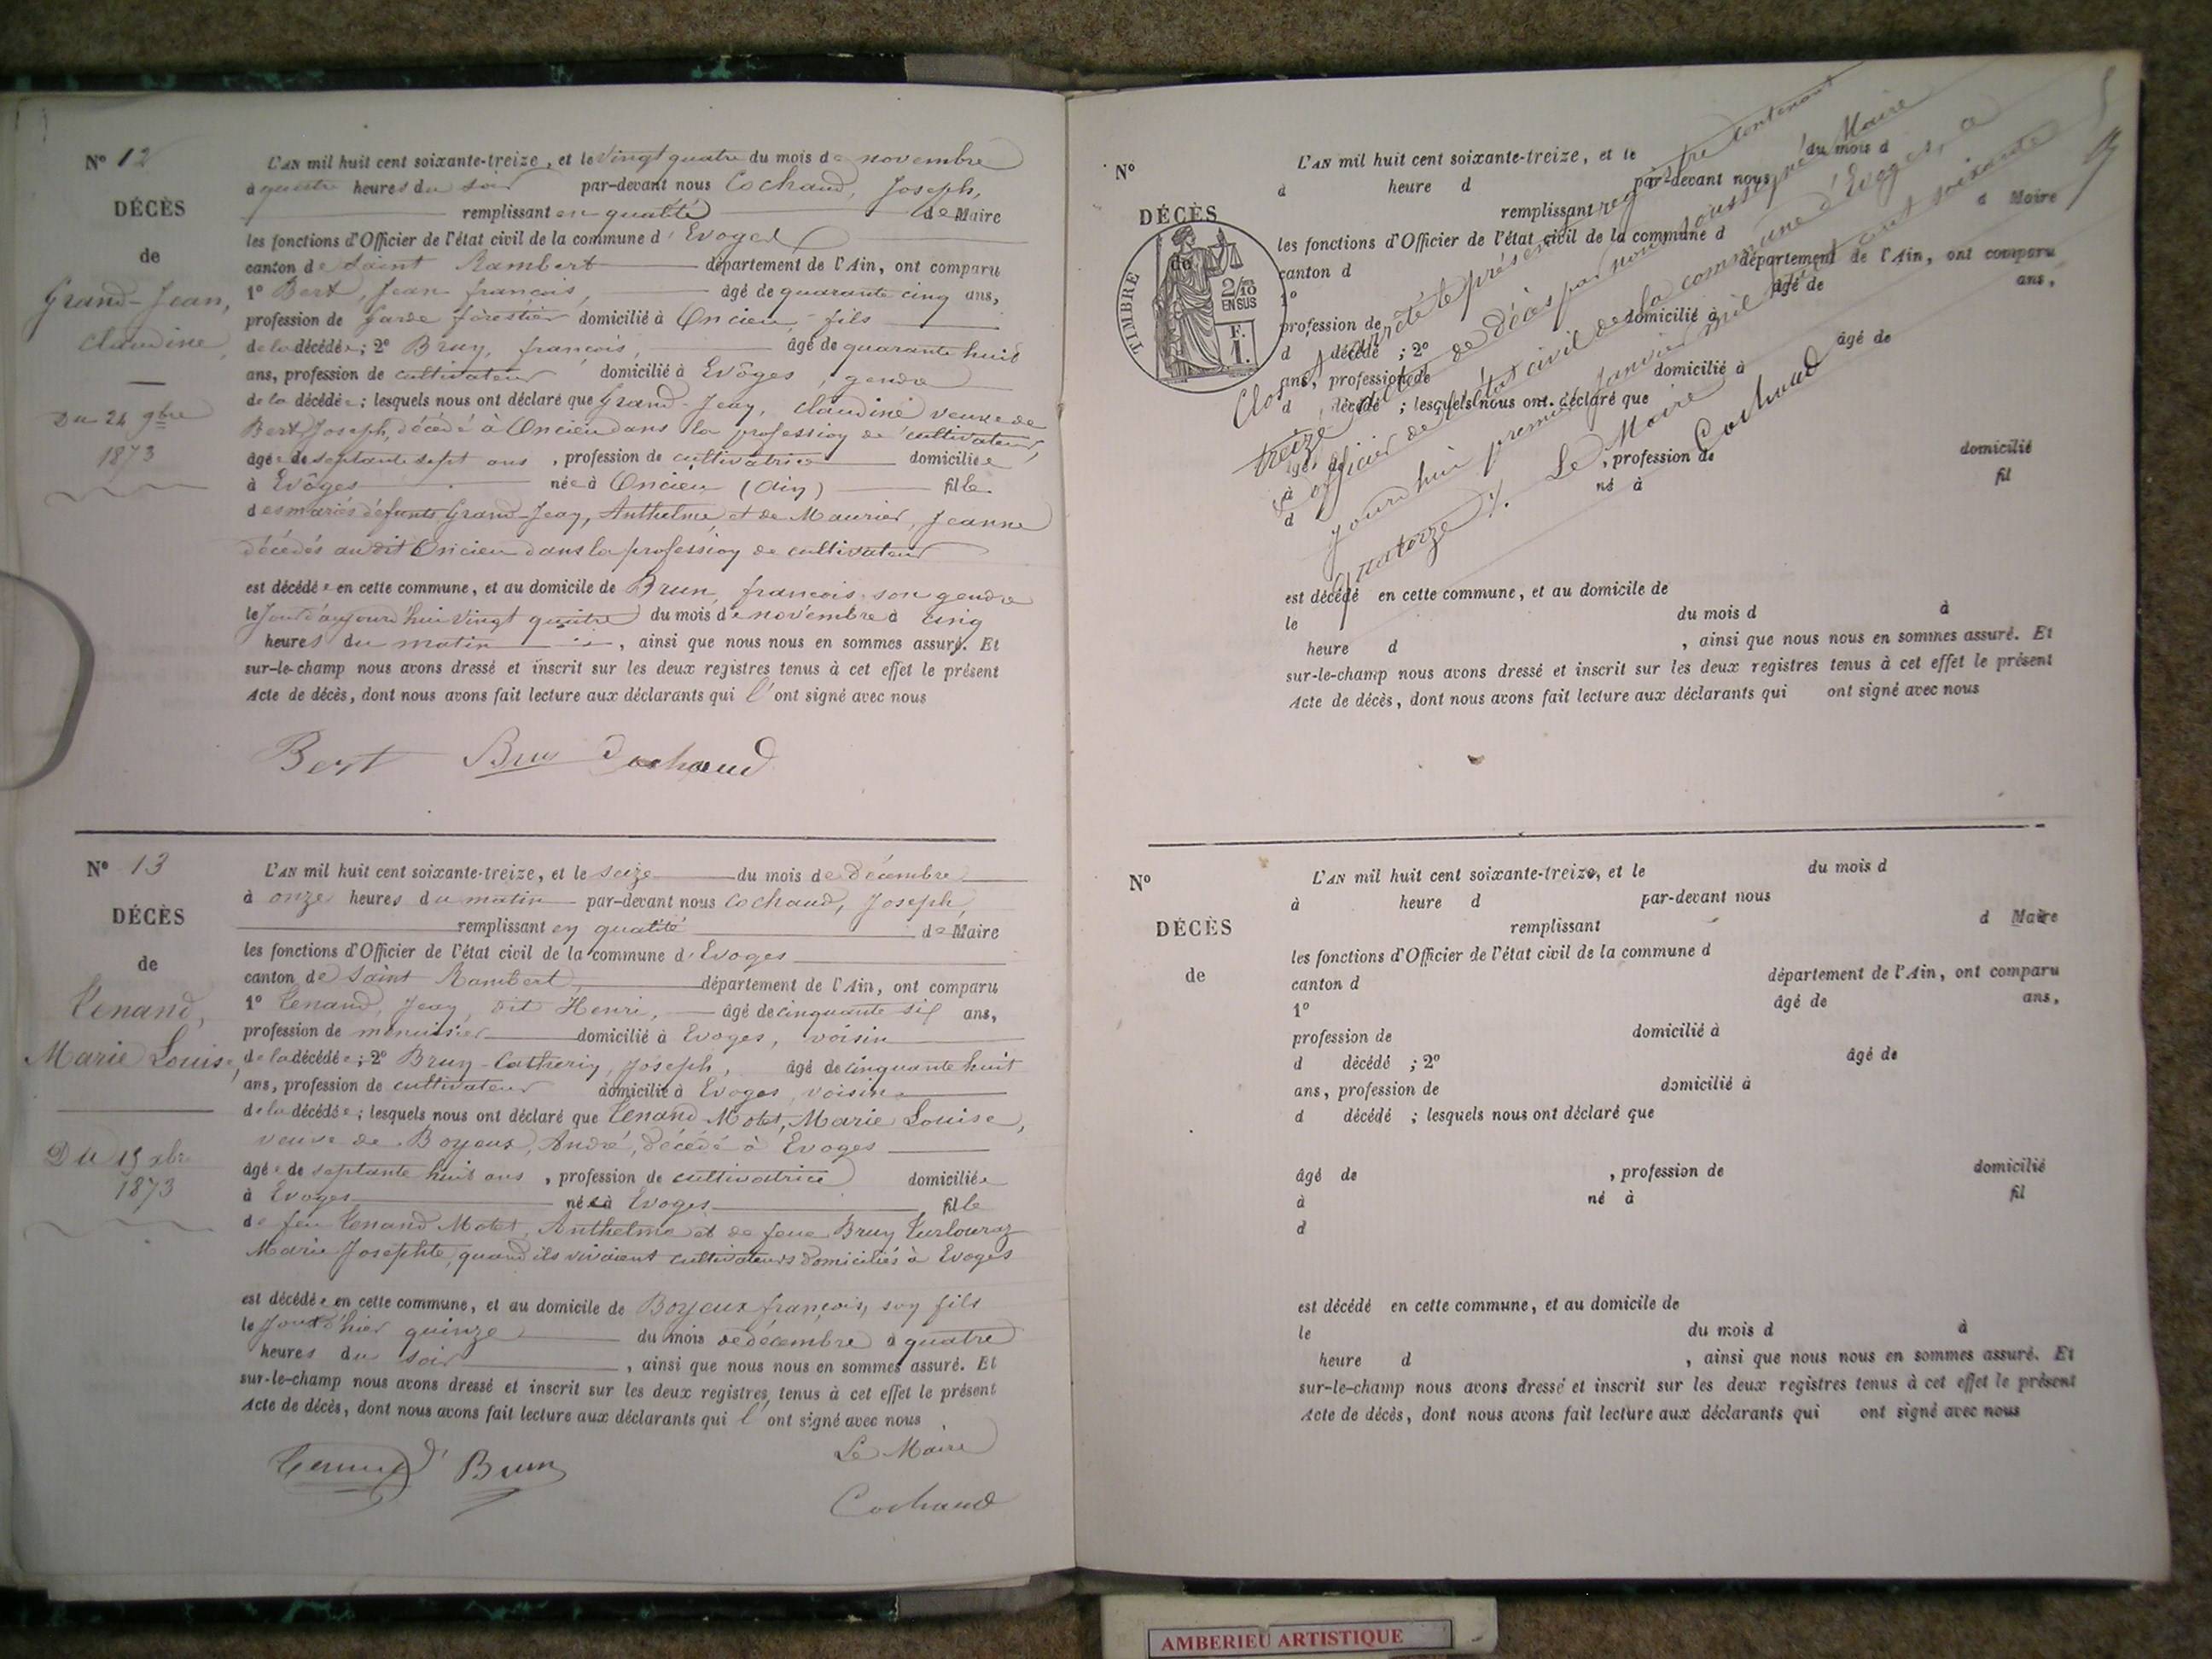 N° 12
DÉCÈS
de
Grand-Jean,
Claudine,
Du 24 9bre
1873
L'AN mil huit cent soixante-treize, et le vingt quatre du mois de novembre
à quatre heures du soir par-devant nous Cochaud, Joseph,
remplissant en qualité de Maire
les fonctions d'Officier de l'état civil de la commune d'Evoges
canton de Saint Rambert département de l'Ain, ont comparu
1° Bert, Jean françois, âgé de quarante cinq ans,
profession de garde forestier domicilié à Oncieu, fils
de la décédée; 2° Brun, françois, âgé de quarante huit
ans, profession de cultivateur domicilié à Evôges, gendre
de la décédée; lesquels nous ont déclaré que Grand-Jean, Claudine veuve de
Bert, Joseph, décédé à Oncieu dans la profession de cultivateur,
âgée de septante sept ans, profession de cultivatrice domiciliée
à Evôges née à Oncieu (Ain) fille
des mariés défunts Grand-Jean, Anthelme et de Maurier, Jeanne
décédés audit Oncieu dans la profession de cultivateur
est décédée en cette commune, et au domicile de Brun, françois son gendre
le jour d'aujourd'hui vingt quatre du mois de novembre à cinq
heures du matin, ainsi que nous nous en sommes assuré. Et
sur-le-champ nous avons dressé et inscrit sur les deux registres tenus à cet effet le présent
Acte de décès, dont nous avons fait lecture aux déclarants qui l'ont signé avec nous
Bert Brun Cochaud
N° 13
DÉCÈS
de
Tenand,
Marie Louise,
Du 15 xbre
1873
L'AN mil huit cent soixante-treize, et le seize du mois de décembre
à onze heures du matin par-devant nous Cochaud, Joseph,
remplissant en qualité de Maire
les fonctions d'Officier de l'état civil de la commune d'Evoges
canton de Saint Rambert, département de l'Ain, ont comparu
1° Tenand, Jean, dit Henri, âgé de cinquante six ans,
profession de menuisier domicilié à Evoges, voisin
de la décédée; 2° Brun-Catherin, Joseph, âgé de cinquante huit
ans, profession de cultivateur domicilié à Evoges, voisin
de la décédée; lesquels nous ont déclaré que Tenand Motet, Marie Louise,
veuve de Boyeux, André, décédé à Evoges
âgée de septante huit ans, profession de cultivatrice domiciliée
à Evoges née à Evoges fille
de feu Tenand Motet, Anthelme et de feue Brun Turlouraz
Marie Josephte, quand ils vivaient cultivateurs domiciliés à Evoges
est décédée en cette commune, et au domicile de Boyeux françois, son fils
le jour d'hier quinze du mois de décembre à quatre
heures du soir, ainsi que nous nous en sommes assuré. Et
sur-le-champ nous avons dressé et inscrit sur les deux registres tenus à cet effet le présent
Acte de décès, dont nous avons fait lecture aux déclarants qui l'ont signé avec nous
Le Maire
Tenand Brun
Cochaud
N°
DÉCÈS
de
TIMBRE
2/10
EN SUS
F.
1.
L'AN mil huit cent soixante-treize, et le du mois d
à heure d par-devant nous
remplissant d Maire
les fonctions d'Officier de l'état civil de la commune d
canton d département de l'Ain, ont comparu
1° âgé de ans,
profession de domicilié à
d décédé ; 2° âgé de
ans, profession de domicilié à
d décédé ; lesquels nous ont déclaré que
âgé de , profession de domicilié
à né à fil
d
Clos et arrêté le présent registre contenant
treize actes de décès par nous soussigné Maire
et officier de l'état civil de la commune d'Evoges, a
jourd'hui premier janvier mil huit cent soixante
quatorze.
Le Maire
Cochaud
est décédé en cette commune, et au domicile de
le du mois d à
heure d , ainsi que nous nous en sommes assuré. Et
sur-le-champ nous avons dressé et inscrit sur les deux registres tenus à cet effet le présent
Acte de décès, dont nous avons fait lecture aux déclarants qui ont signé avec nous
N°
DÉCÈS
de
L'AN mil huit cent soixante-treize, et le du mois d
à heure d par-devant nous
remplissant d Maire
les fonctions d'Officier de l'état civil de la commune d
canton d département de l'Ain, ont comparu
1° âgé de ans,
profession de domicilié à
d décédé ; 2° âgé de
ans, profession de domicilié à
d décédé ; lesquels nous ont déclaré que
âgé de , profession de domicilié
à né à fil
d
est décédé en cette commune, et au domicile de
le du mois d à
heure d , ainsi que nous nous en sommes assuré. Et
sur-le-champ nous avons dressé et inscrit sur les deux registres tenus à cet effet le présent
Acte de décès, dont nous avons fait lecture aux déclarants qui ont signé avec nous
AMBERIEU ARTISTIQUE